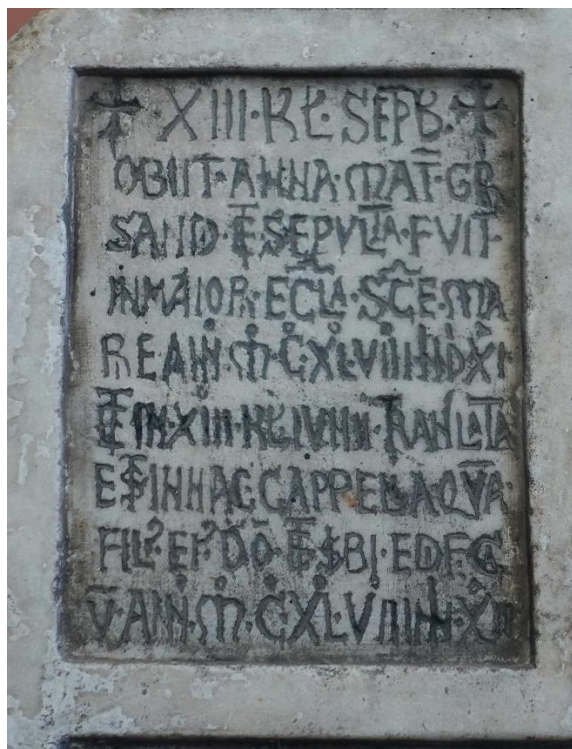 ✝ · XIII · KŁ · SEPB · ✝
OBIIT · ANNA · MAT · GR
SAND · ET SEPVLTA · FVIT ·
IN MAIOR · ECLA · SCE · MA
RE ANN · M · C · XLVIII · IND XI
ET IN · XIII · KŁ IVNII · TRANLATA
EST IN HAC · CAPPELLA QVA ·
FIL · EI · DO · ET SBI · EDFC
V · ANN · M · C · XL · VIIII IN · XII